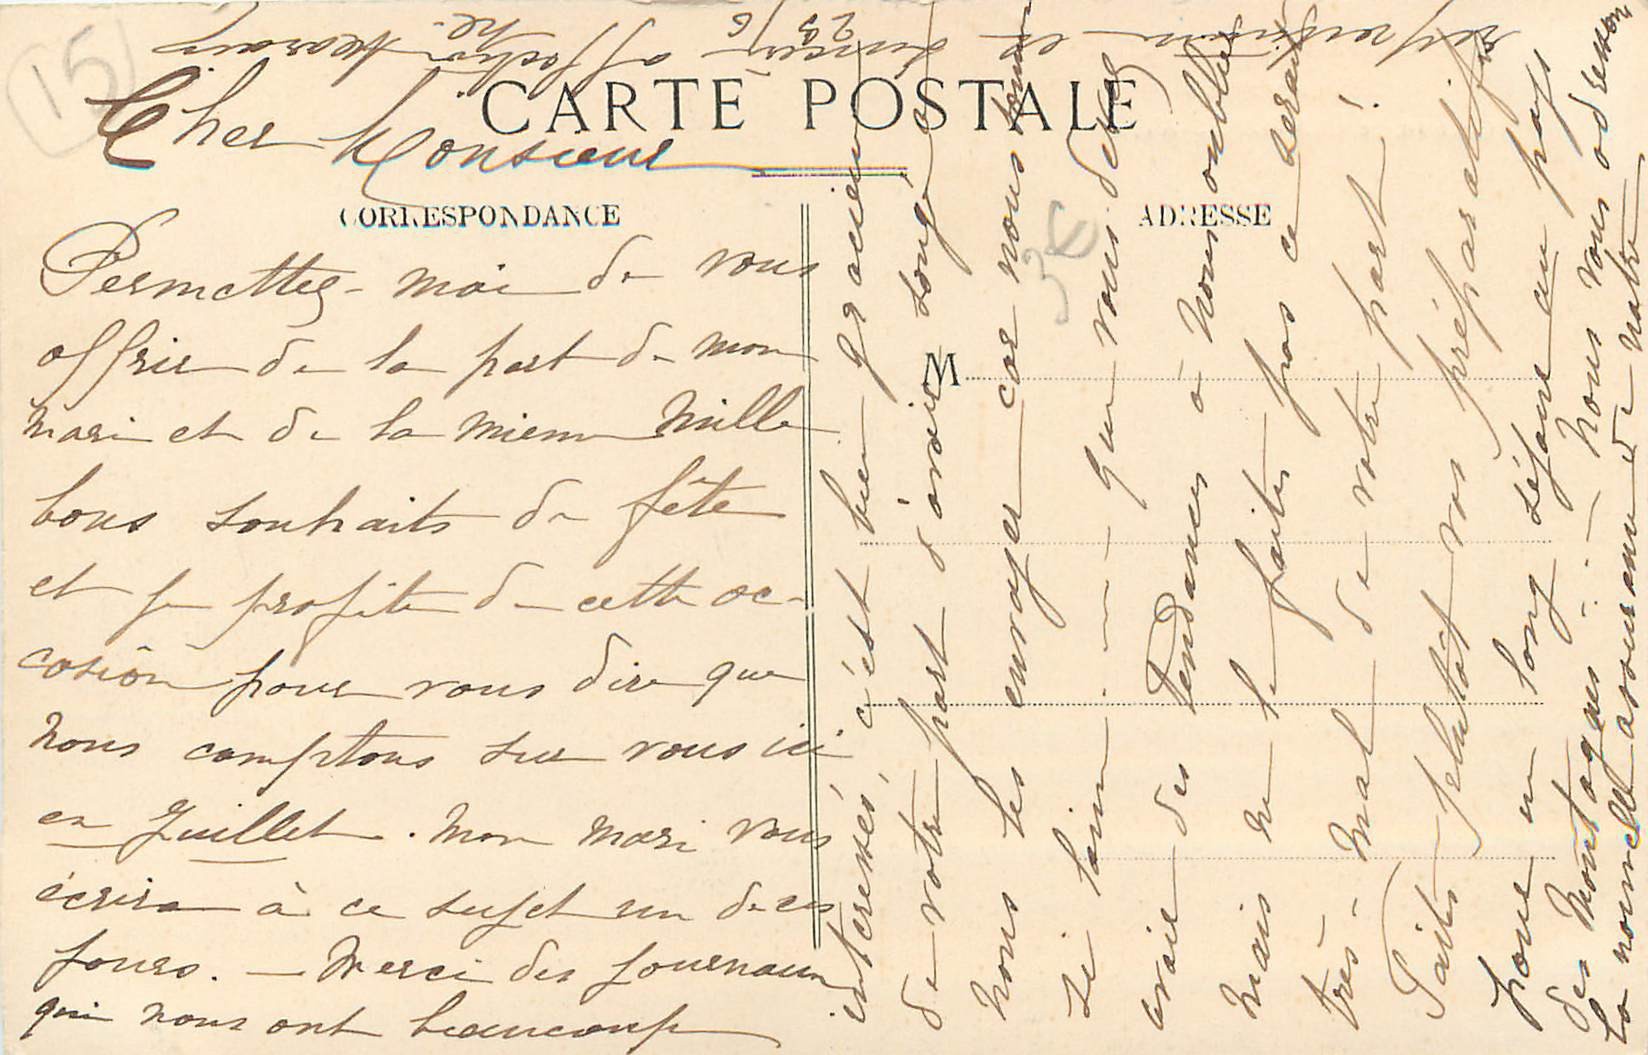 15
CARTE POSTALE
Cher Monsieur
CORRESPONDANCE
ADRESSE
3E
M
Permettez-moi de vous
offrir de la part de mon
mari et de la mienne mille
bons souhaits de fête
et je profite de cette oc-
casion pour vous dire que
nous comptons sur vous ici
en Juillet. mon mari vous
écrira à ce sujet un de ces
jours. — Merci des journaux
qui nous ont beaucoup
intéressés, c'est bien gracieux
de votre part d'avoir songé à
nous les envoyer car nous sommes
si loin — que vous devez
avoir des tendances à nous oublier
mais ne le faites pas ce serait
très-mal de votre part!
Faites plutôt vos préparatifs
pour un long séjour au pays
des Montagnes. — nous vous adressons
la nouvelle assurance de notre
et